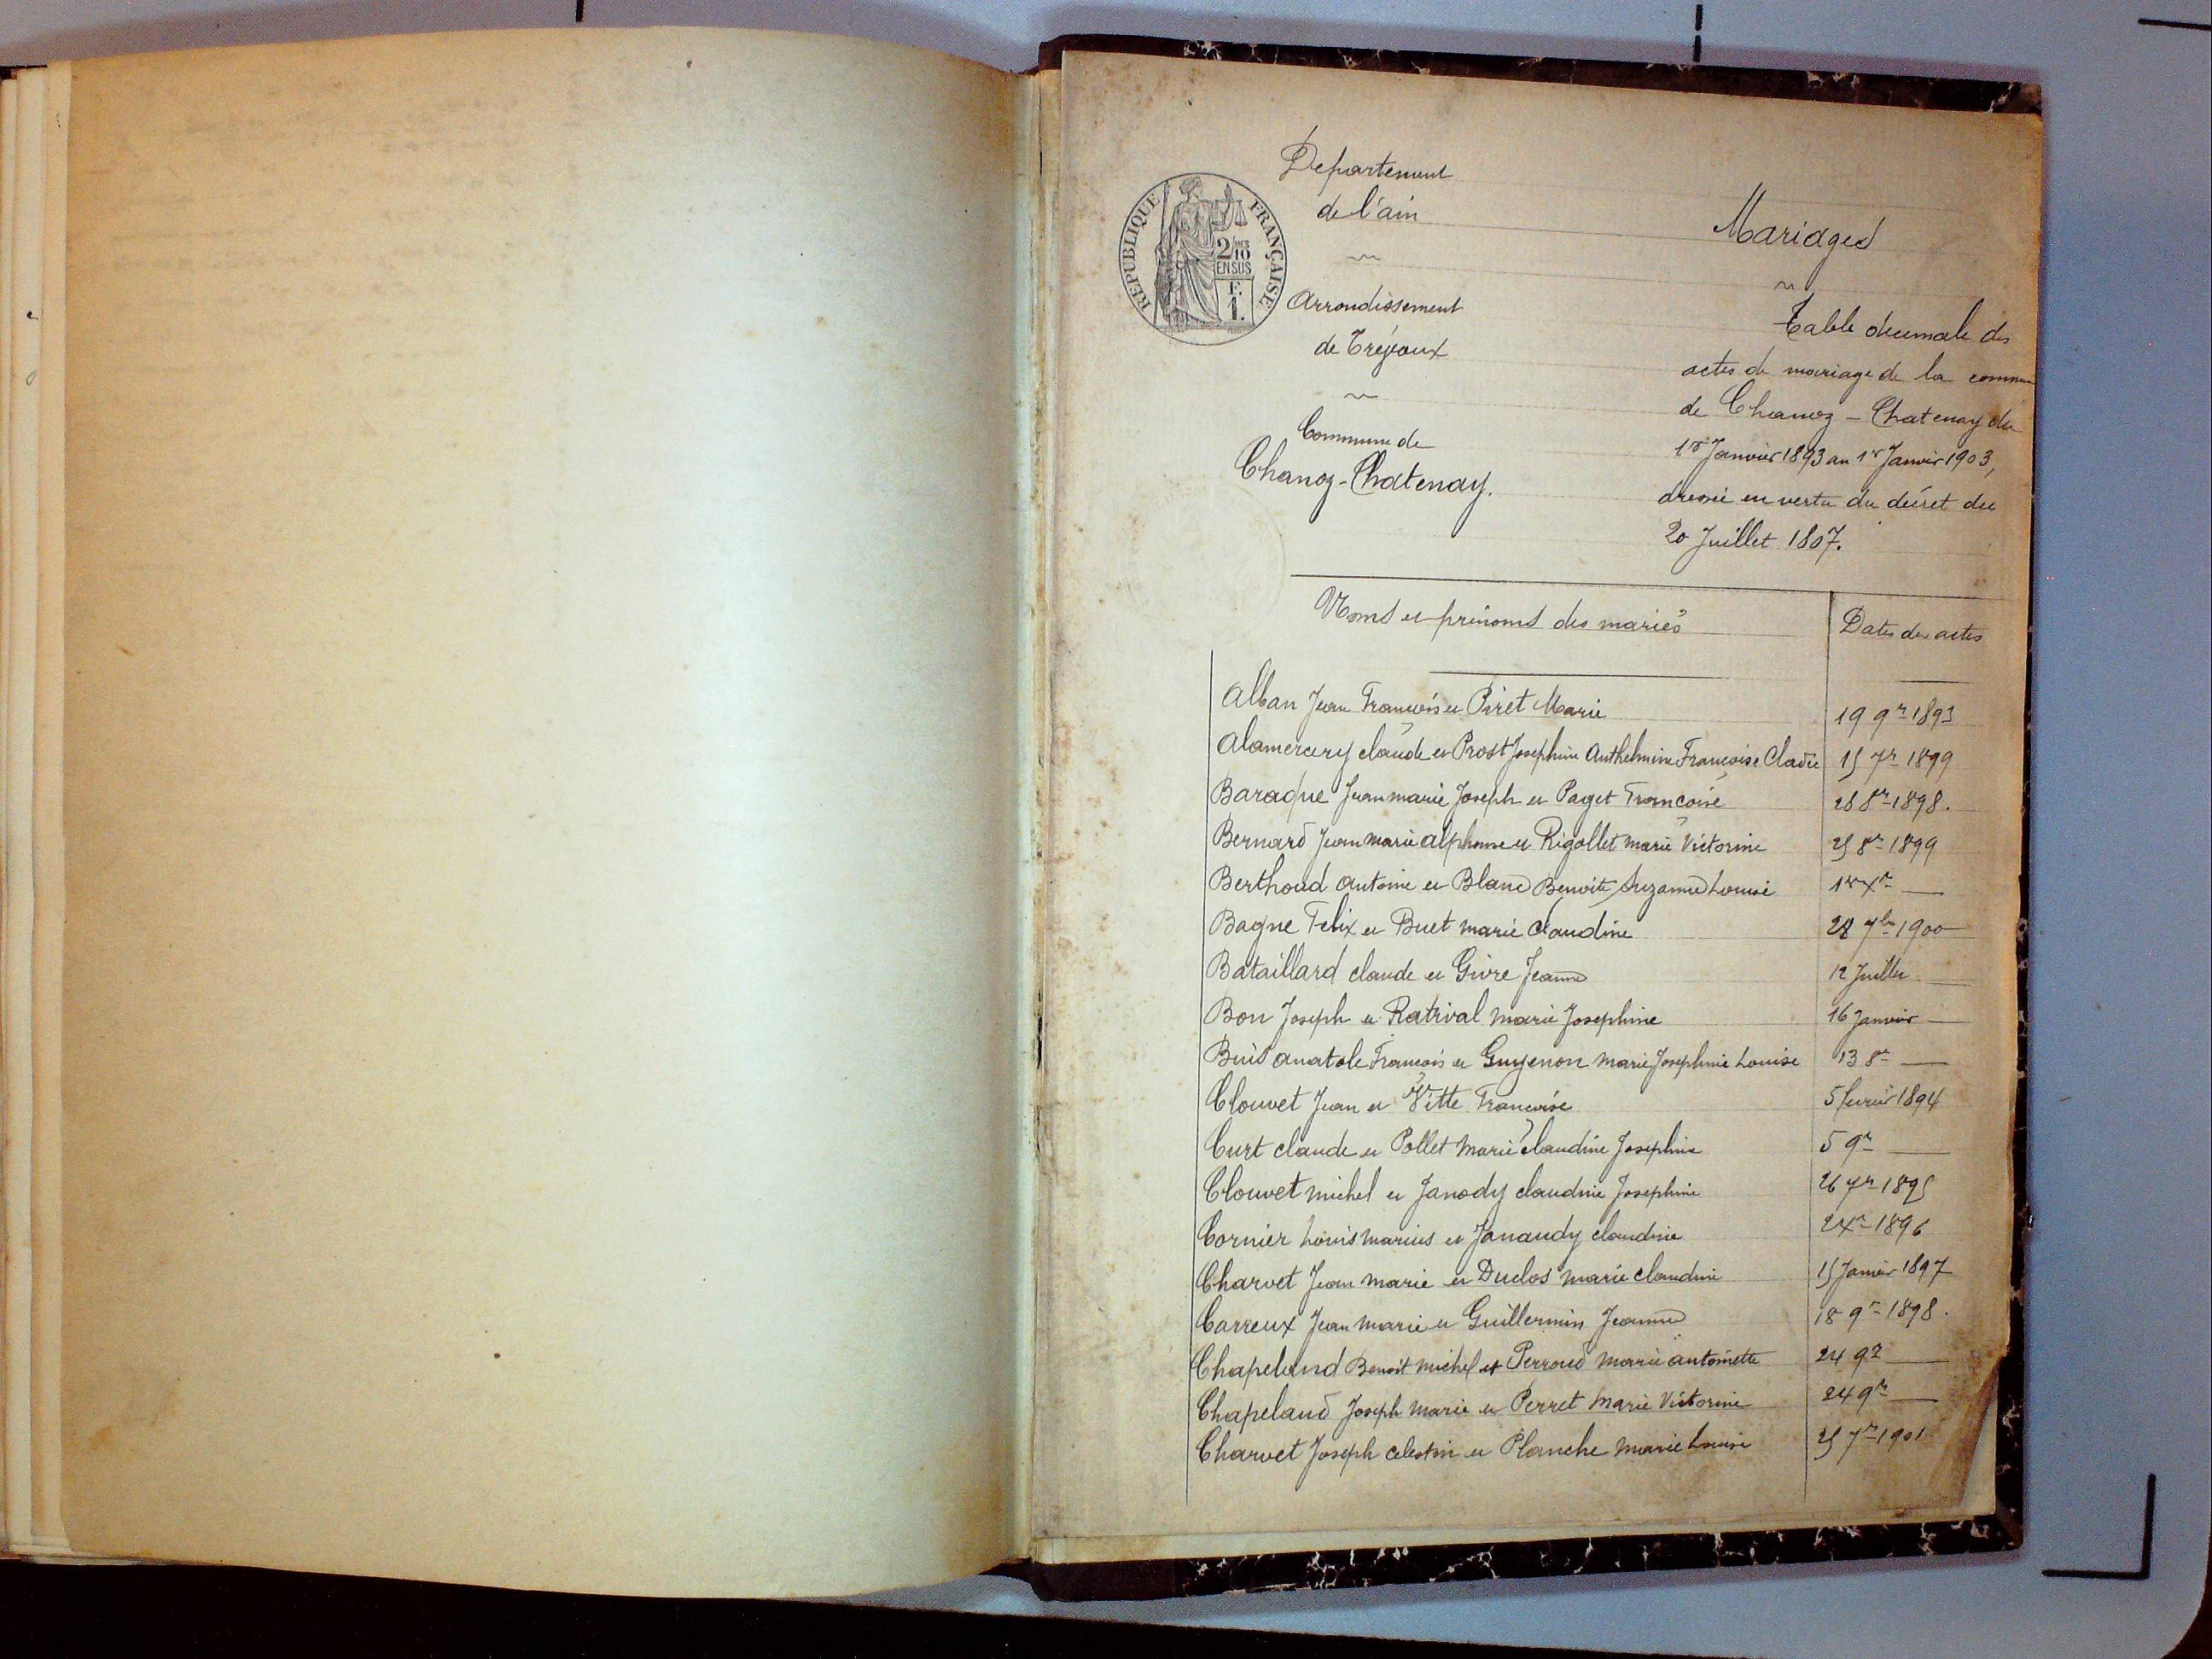 Departement
de l'ain
RÉPUBLIQUE FRANÇAISE
2/10
EN SUS
F.
1.
Arrondissement
de Trévoux
Commune de
Chanoz-Chatenay.
Mariages
Table décimale des
actes de mariage de la commune
de Chanoz-Chatenay du
1er Janvier 1893 au 1er Janvier 1903,
dressée en vertu du décret du
20 Juillet 1807.
Noms et prénoms des mariés Dates des actes
Alban Jean François et Piret Marie 19 9re 1893
Alamercery claude et Prost Josephine Anthelmine Françoise Cladie 15 7re 1899
Baraque Jean marie Joseph et Paget Françoise 28 8re 1898.
Bernard Jean marie alphonse et Rigollet marie Victorine 25 8re 1899
Berthoud antoine et Blanc Benoite Suzanne Louise 1er Xre —
Bagne Felix et Buet marie Claudine 28 7bre 1900
Bataillard claude et Givre Jeanne 12 Juillet —
Bon Joseph et Ratrival marie Josephine 16 Janvier —
Buis anatole François et Guyenon marie Josephine Louise 13 8re —
Clouvet Jean et Vitte Françoise 5 fevrier 1894
Curt claude et Pollet marie claudine Josephine 5 9re —
Clouvet michel et Janody claudine Josephine 26 7re 1895
Cornier Louis marius et Janaudy claudine 2 Xre 1896
Charvet Jean marie et Duclos marie claudine 15 Janvier 1897
Carreux Jean marie et Guillermin Jeanne 18 9re 1898.
Chapeland Benoit michel et Perroud marie antoinette 24 9re —
Chapeland Joseph marie et Perret marie Victorine 24 9re —
Charvet Joseph celestin et Planche marie Louise 25 7re 1901